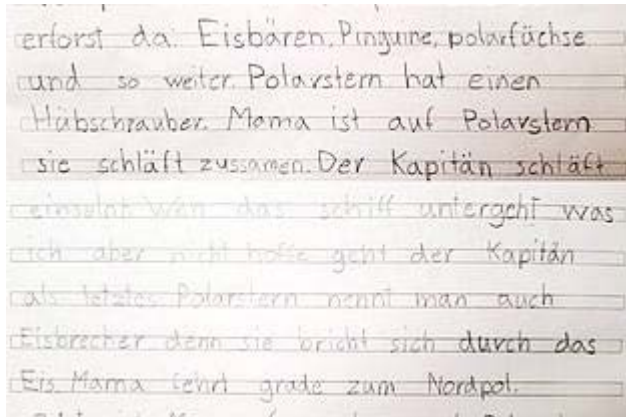 erforst da. Eisbären, Pinguine, polarfüchse
und so weiter. Polarstern hat einen
Hübschrauber. Mama ist auf Polarstern
sie schläft zussamen. Der Kapitän schläft
einseln Wen das schiff untergeht was
ich aber nicht hoffe geht der Kapitän
als letztes Polarstern nennt man auch
Eisbrecher denn sie bricht sich durch das
Eis. Mama fehrt grade zum Nordpol.